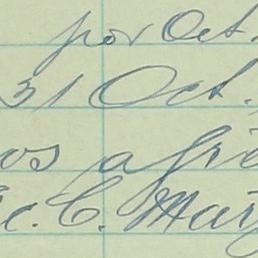 por Oct.
31 Oct.
os afri
c. C. Mar